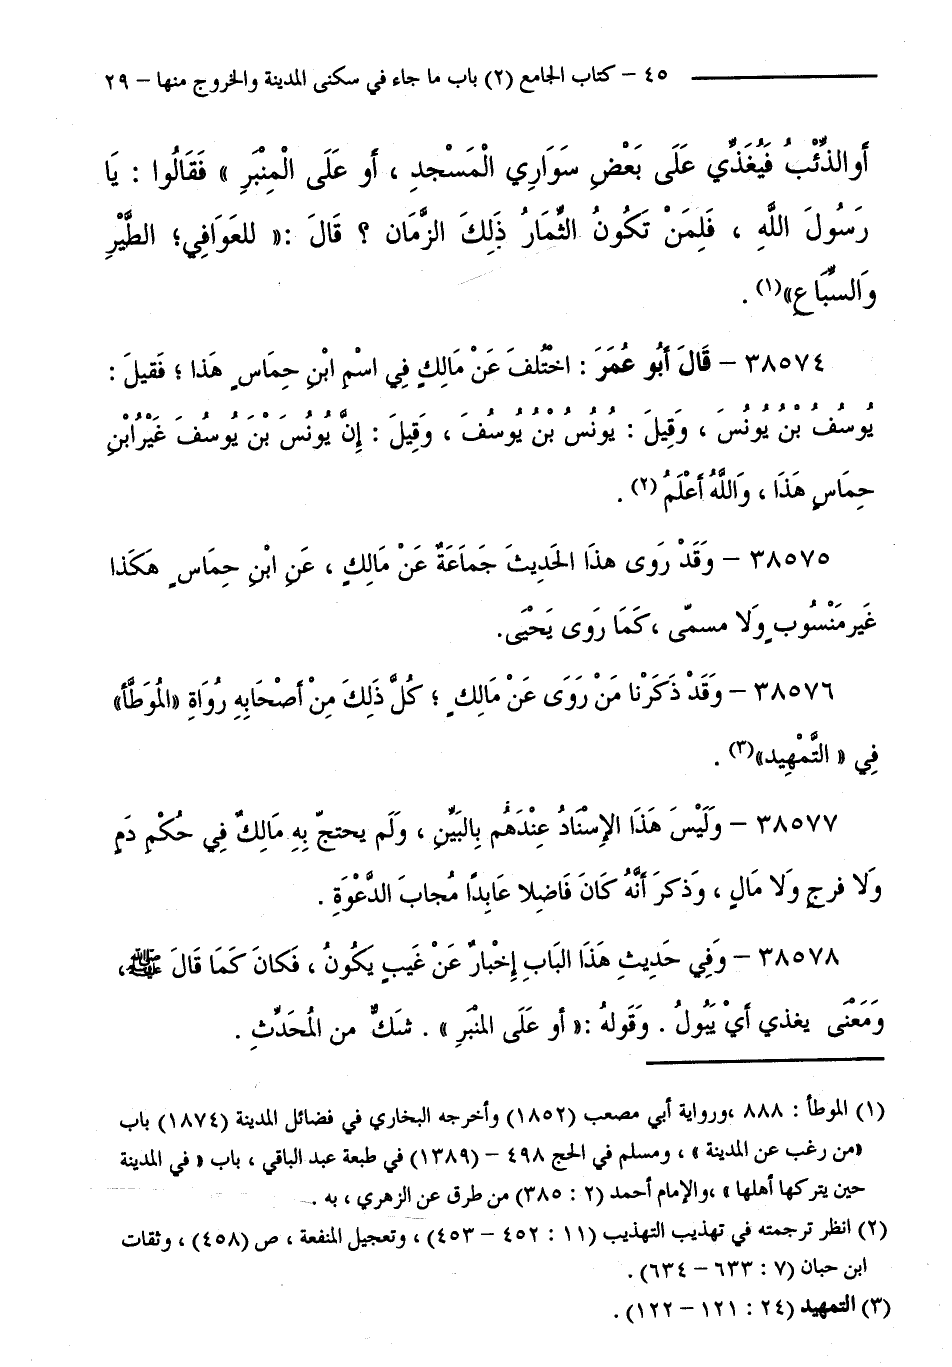 ٤٥ – كتاب الجامع (٢) باب ما جاء في سكنى المدينة والخروج منها – ٢٩
أوالذِّئْبُ فَيُغَذِّي عَلَى بَعْضِ سَوَارِي الْمَسْجدِ ، أو عَلَى الْمِنْبَرِ » فَقَالُوا : يَا
رَسُولَ اللَّهِ ، فَلِمَنْ تَكُونُ الثِّمَارُ ذَلِكَ الزَّمَان ؟ قَالَ :« للعَوَافِي؛ الطَّيْرِ
وَالسِّبَاعِ»(١) .
٣٨٥٧٤ – قَالَ أبُو عُمَرَ : اخْتُلفَ عَنْ مَالِكٍ فِي اسْمِ ابْنِ حِمَاسٍ هَذا ؛ فَقيلَ :
يُوسُفُ بْنُ يُونُسَ ، وَقِيلَ : يُونُسُ بْنُ يُوسُفَ ، وَقِيلَ : إِنَّ يُونُسَ بْنَ يُوسُفَ غَيْرُابْنِ
حِمَاسٍ هَذَا ، وَاللَّهُ أعْلَمُ (٢) .
٣٨٥٧٥ – وَقَدْ رَوَى هذَا الحَدِيثَ جَمَاعَةٌ عَنْ مَالِكٍ ، عَنِ ابْنِ حِمَاسٍ هكَذا
غَيرمَنْسُوبٍ وَلا مسمّى ،كَمَا رَوى يَحْيَى.
٣٨٥٧٦ – وَقَدْ ذَكَرْنا مَنْ رَوَى عَنْ مَالكٍ ؛ كُلَّ ذَلِكَ مِنْ أصْحَابِهِ رُوَاةِ «المُوَطَّأ»
فِي « التَّمْهِيد»(٣) .
٣٨٥٧٧ – وَلَيْسَ هَذَا الإِسْنَادُ عِنْدَهُم بِالبَيِّنِ ، وَلَم يحتجّ بِهِ مَالِكٌ فِي حُكْمِ دَمٍ
وَلا فرجٍ وَلا مَالٍ ، وَذكرَ أنَّهُ كَانَ فَاضِلا عَابِدًا مُجابَ الدَّعْوَةِ .
٣٨٥٧٨ – وَفِي حَدِيثِ هَذَا البَابِ إِخْبارٌ عَنْ غَيبٍ يَكُونُ ، فَكانَ كَمَا قَالَ ﷺ،
وَمَعْنَى يغذي أيْ يَبُولُ . وَقَولهُ :« أو عَلَى المنْبَرِ » . شكٌّ من المُحَدِّثِ .
(١) الموطأ : ٨٨٨ ،ورواية أبي مصعب (١٨٥٢) وأخرجه البخاري في فضائل المدينة (١٨٧٤) باب
«من رغب عن المدينة » ، ومسلم في الحج ٤٩٨ – (١٣٨٩) في طبعة عبد الباقي ، باب « في المدينة
حين يتركها أهلها » ،والإمام أحمد (٢ : ٣٨٥) من طرق عن الزهري ، به .
(٢) انظر ترجمته في تهذيب التهذيب (١١ : ٤٥٢ – ٤٥٣) ، وتعجيل المنفعة ، ص (٤٥٨) ، وثقات
ابن حبان (٧ : ٦٣٣ – ٦٣٤) .
(٣) التمهيد (٢٤ : ١٢١ – ١٢٢) .